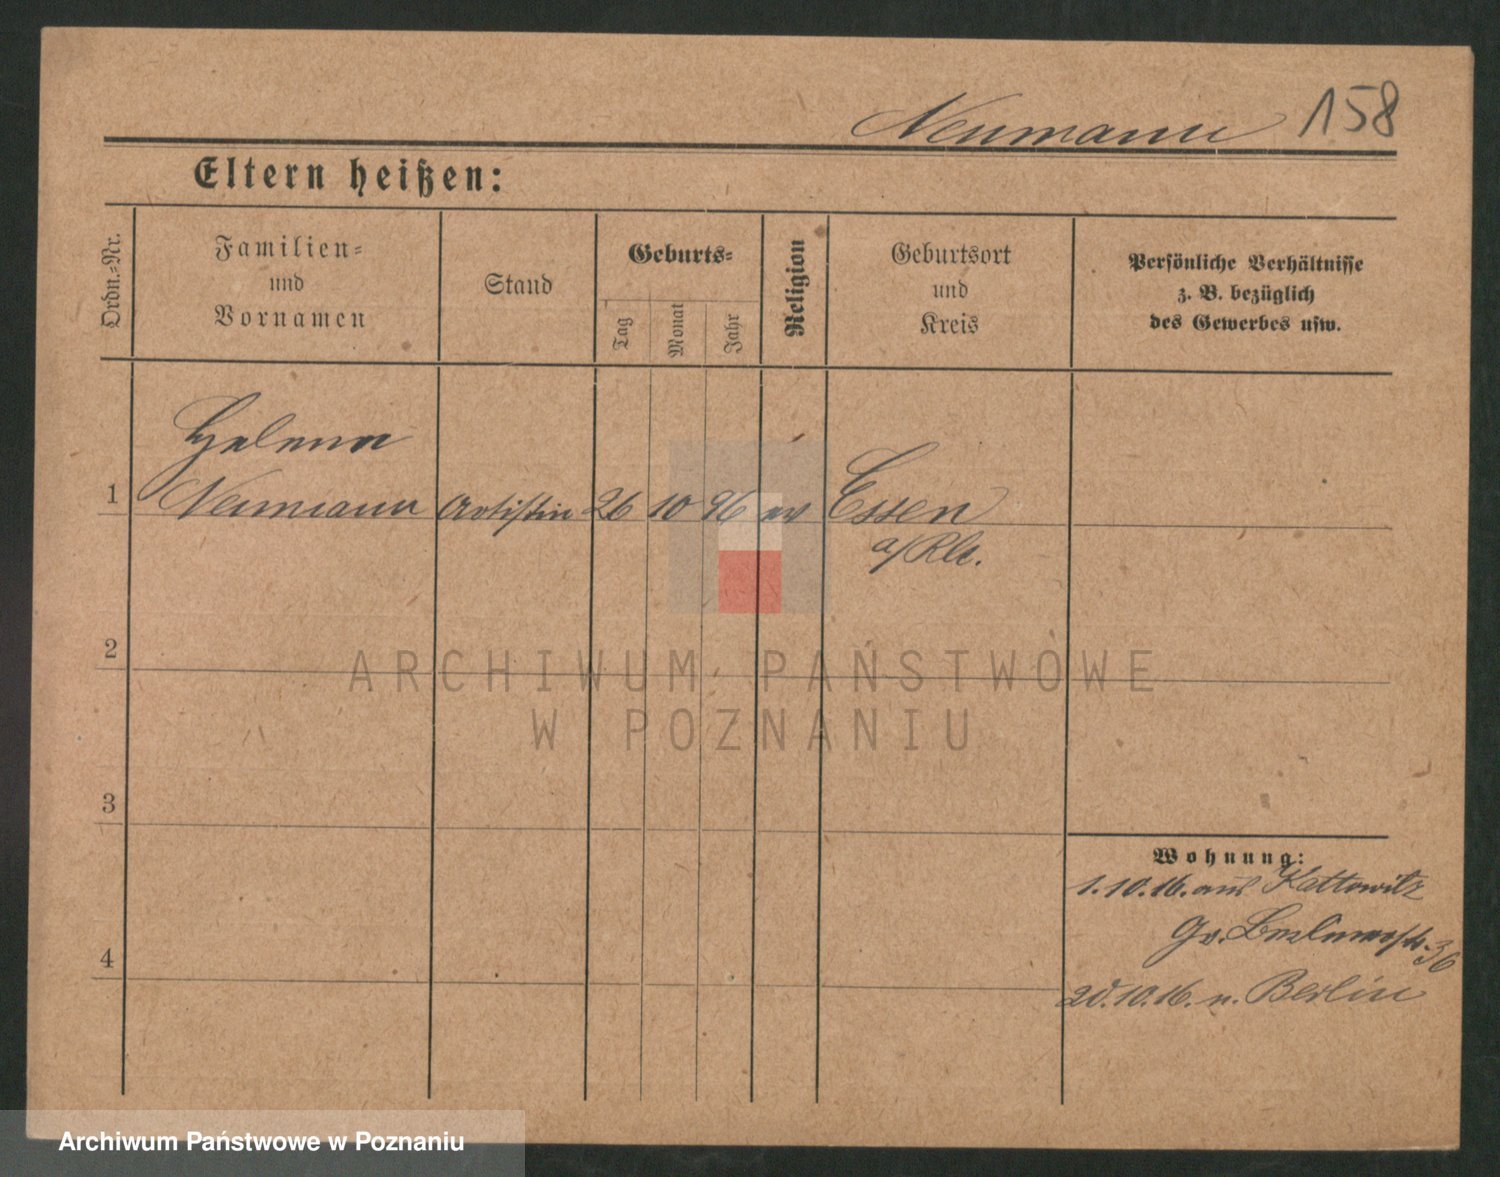 Neumann 158
Eltern heißen:
Ordn.=Nr.
Familien=
und
Vornamen
Stand
Geburts=
Tag
Monat
Jahr
Religion
Geburtsort
und
Kreis
Persönliche Verhältnisse
z. B. bezüglich
des Gewerbes usw.
Helena
1 Neumann Artistin 26 10 96 ev Essen
a/Rh.
2
3
4
Wohnung:
1.10.16. aus Kattowitz
Gr. Berlinerstr. 36
20.10.16. n. Berlin
ARCHIWUM PAŃSTWOWE
W POZNANIU
Archiwum Państwowe w Poznaniu